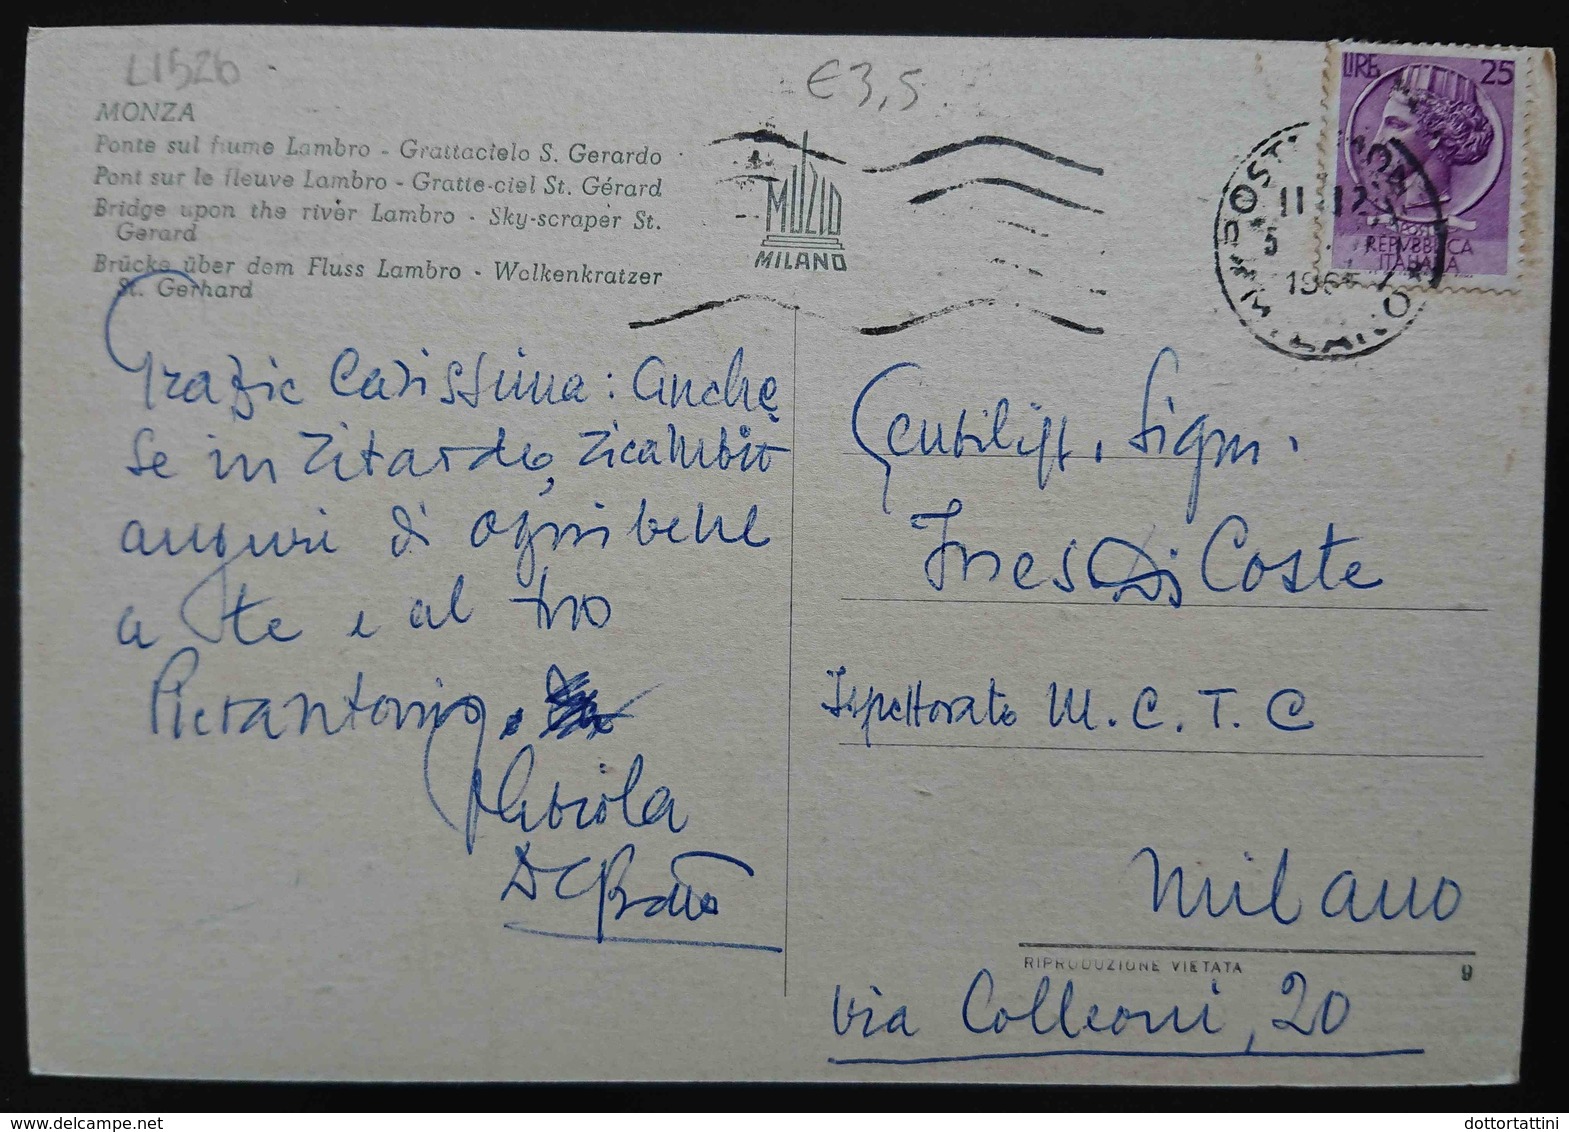 L1526
€3,5
MONZA
Ponte sul fiume Lambro - Grattacielo S. Gerardo
Pont sur le fleuve Lambro - Gratte-ciel St. Gérard
Bridge upon the river Lambro - Sky-scraper St.
Gerard
Brücke über dem Fluss Lambro - Wolkenkratzer
St. Gerhard
MUZIO
MILANO
POSTE
11-12
5
196
MILANO
LIRE 25
POSTE
REPVBBLICA
ITALIANA
Grazie Carissima: anche
se in ritardo, ricambio
auguri di ogni bene
a te e al tuo
Pierantonio.
Gentiliss. Sign.
Ines Di Coste
Ispettorato M.C.T.C
Milano
RIPRODUZIONE VIETATA 9
via Colleoni, 20
dottortattini